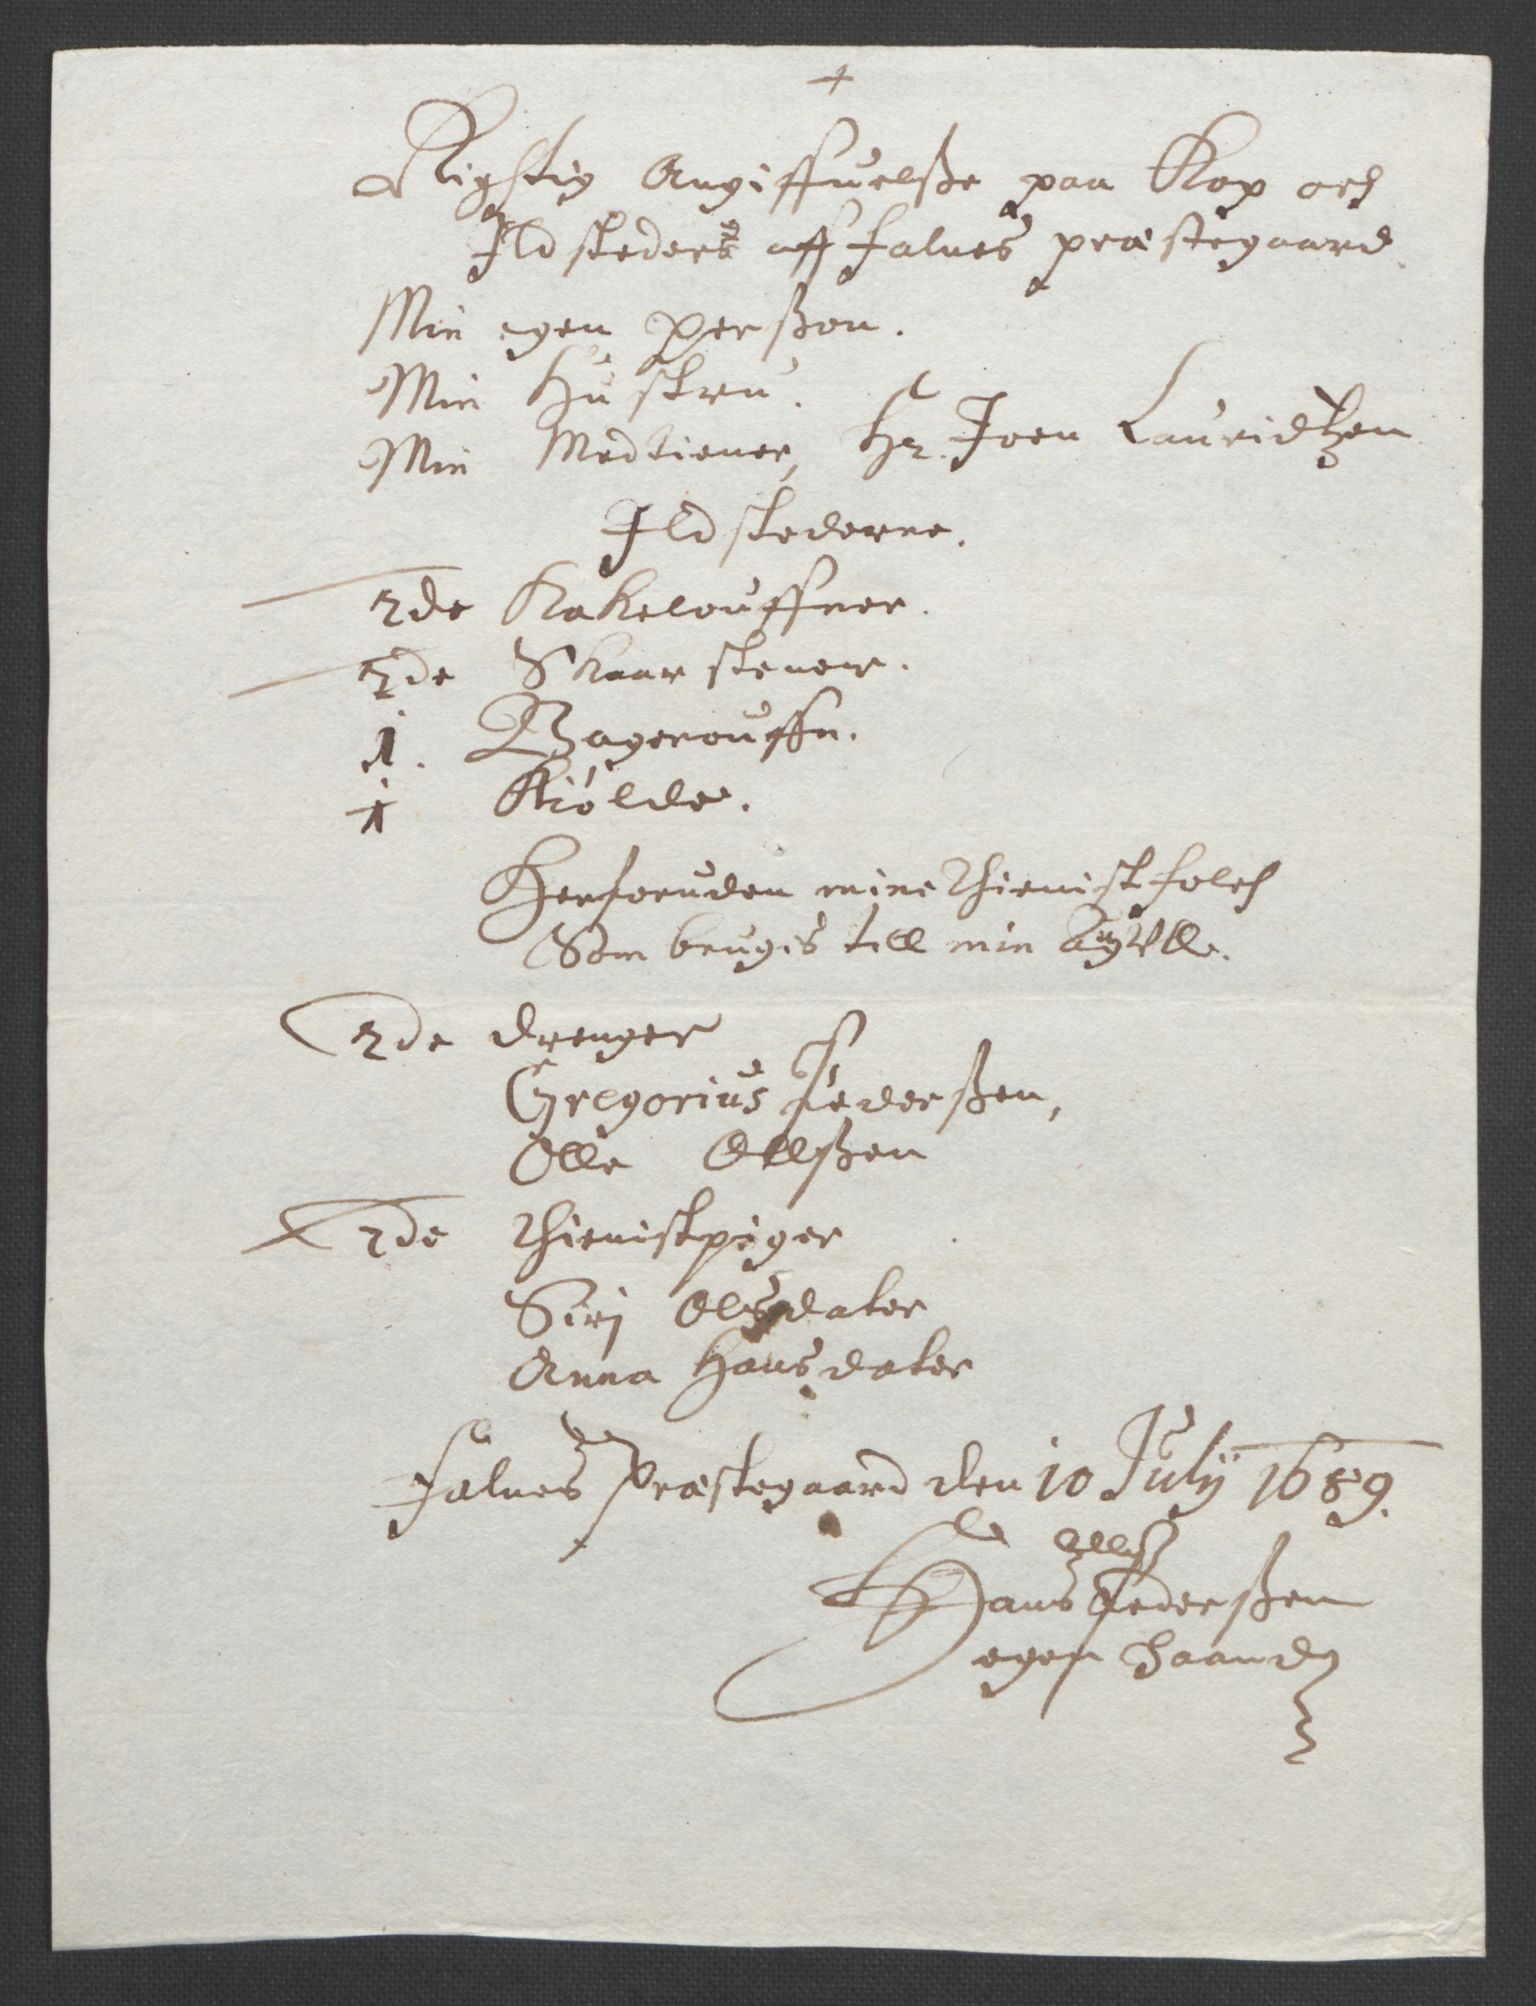 +
Rightig Angiffuelße paa Kop och
Ildsteders aff Falnes præstegaard
Min egen Perßon.
Min Hustru.
Min Medtiener, Hr. Joen Lauridtzen
Ildstederne.
2de Kakelouffner.
2de Skaarstener.
1. Bagerouffn.
1 Kiólde.
Herforuden mine Thienistfolch
Som brugis till min Auffll.
2de drenger
Gregorius Pederßen,
Olle Ollßen
2de Thienistpiger
Siri Olsdater
Anna Hansdater
Falnes Præstegaard den 10 July 1689.
Hans Pederßen
egen haand